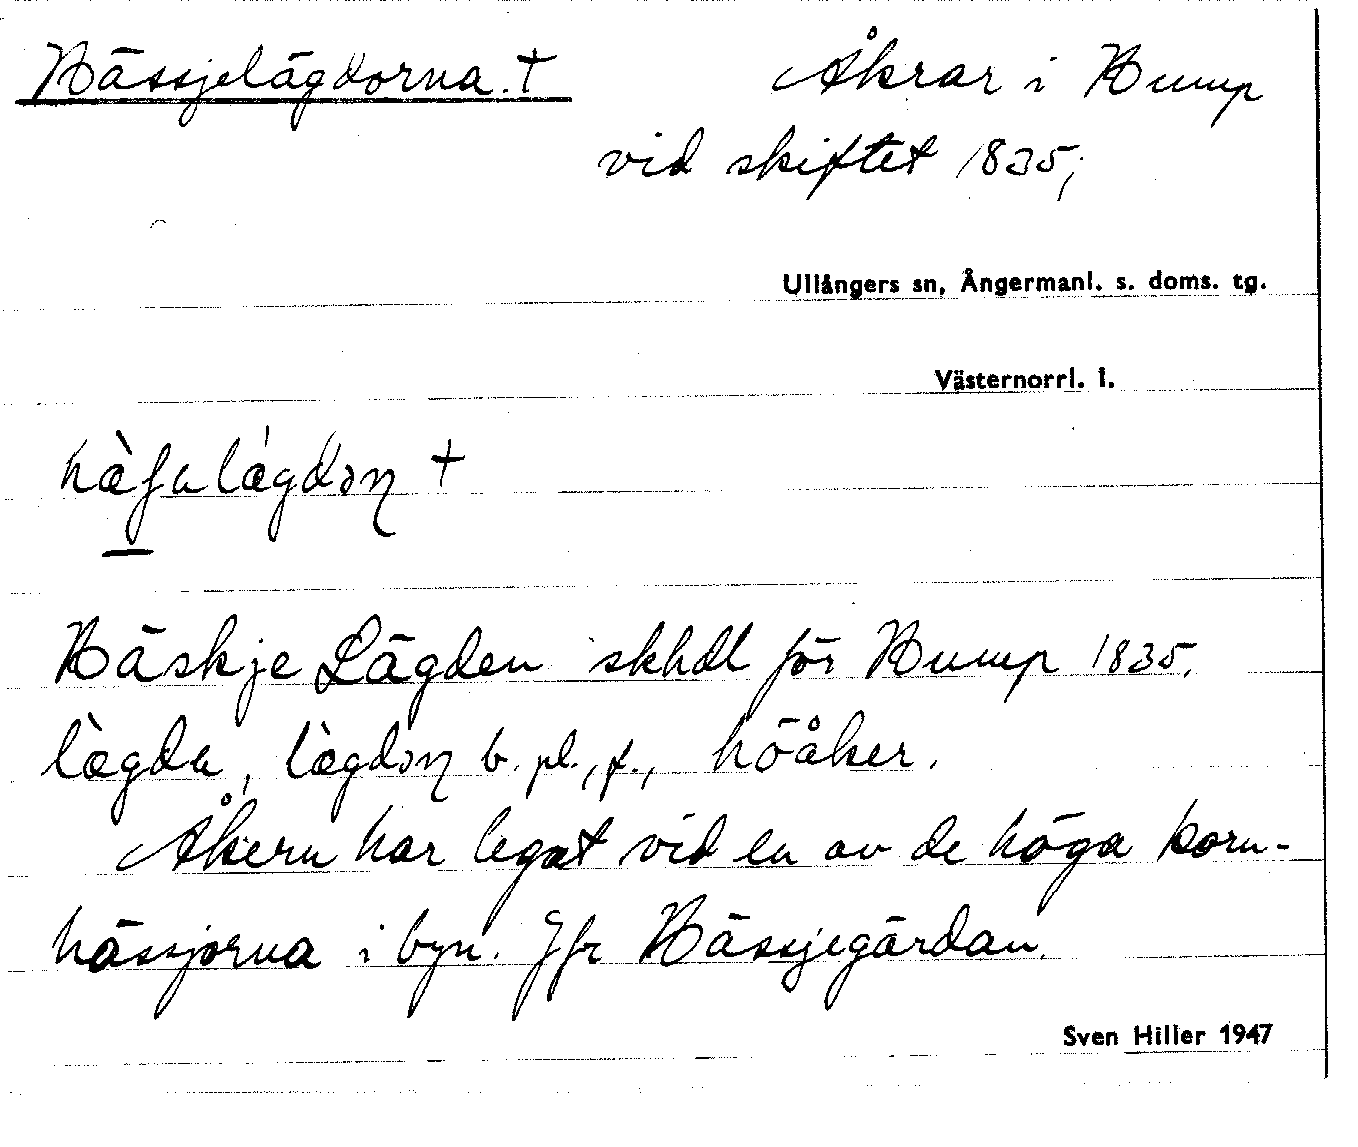 Hässjelägdorna. †
Åkrar i Hump
vid skiftet 1835;
Ullångers sn, Ångermanl. s. doms. tg.
Västernorrl. l.
†
Häskje Lägden skhdl för Hump 1835.
b. pl., f., höåker.
Åkern har legat vid en av de höga korn-
hässjorna i byn. Jfr Hässjegårdan.
Sven Hiller 1947